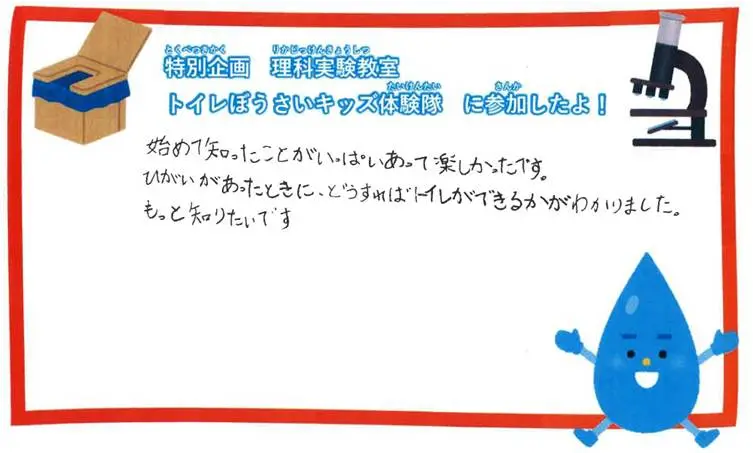 とくべつきかく りかじっけんきょうしつ
特別企画 理科実験教室
たいけんたい さんか
トイレぼうさいキッズ体験隊 に参加したよ！
始めて知ったことがいっぱいあって楽しかったです。
ひがいがあったときに、どうすればトイレができるかがわかりました。
もっと知りたいです